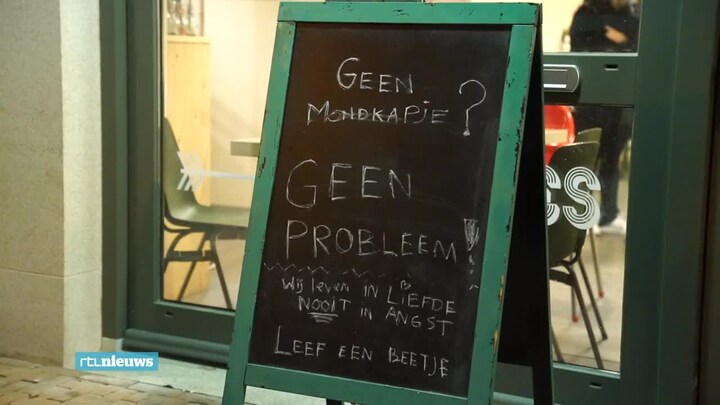 GEEN
MONDKAPJE?
GEEN
PROBLEEM!
Wij leven IN LIEFDE
NOOIT IN ANGST
LEEF EEN BEETJE
CS
rtl nieuws